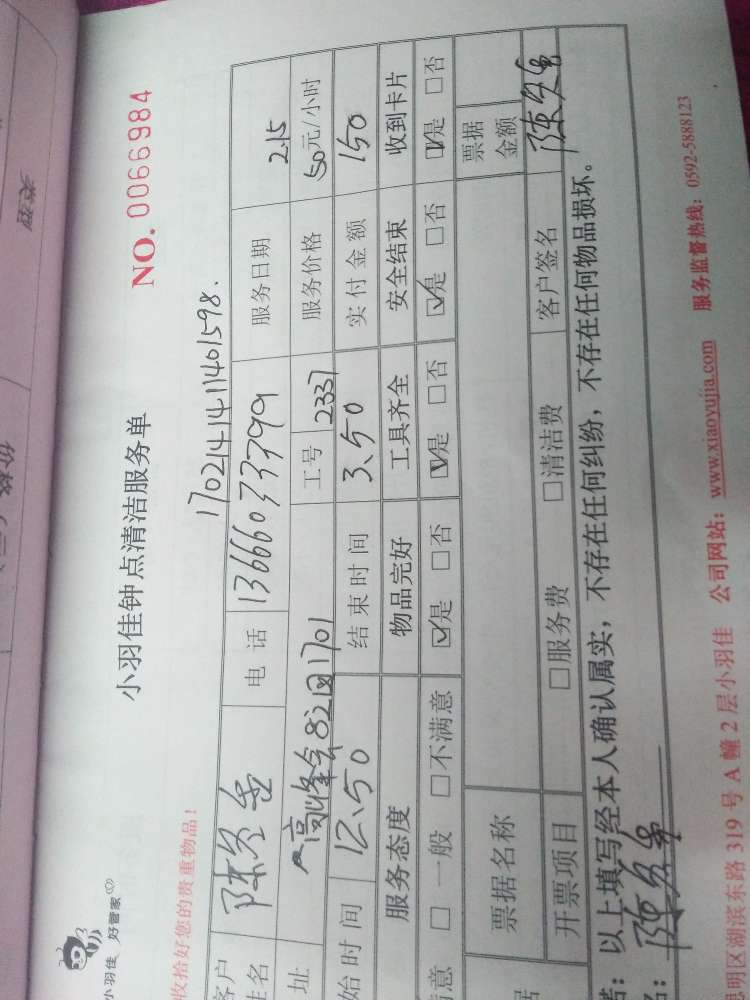 小羽佳 好管家
小羽佳钟点清洁服务单
NO. 0066984
收拾好您的贵重物品!
1702141411401598.
客户 姓名 电话 13666033799 服务日期 2.15
址 高峰会 1701 工号 2337 服务价格 50元/小时
始时间 12、50 结束时间 3、50 实付金额 150
服务态度 物品完好 工具齐全 安全结束 收到卡片
满意 □ 一般 □不满意 ☑是 □否 ☑是 □否 ☑是 □否 ☑是 □否
票据名称 票据金额
据 开票项目 □服务费 □清洁费 客户签名 陈
以上填写经本人确认属实,不存在任何纠纷,不存在任何物品损坏。
陈
明区湖滨东路 319 号 A 幢 2 层小羽佳 公司网站:www.xiaoyujia.com 服务监督热线:0592-5888123